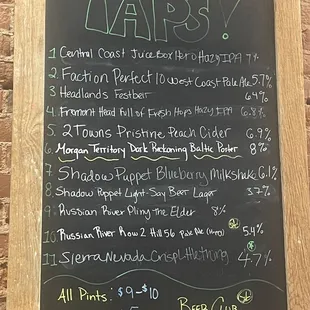 TAPS!
1 Central Coast Juice Box Hero Hazy IPA 7%
2. Faction Perfect 10 West Coast Pale Ale 5.7%
3 Headlands Festbeir 6.4%
4. Fremont Head Full of Fresh Hops Hazy IPA 6.8%
5. 2 Towns Pristine Peach Cider 6.9%
6. Morgan Territory Dark Reckoning Baltic Porter 8%
7 Shadow Puppet Blueberry Milkshake 6.1%
8 Shadow Puppet Light-Say Beer Lager 3.7%
9 Russian River Pliny The Elder 8%
10. Russian River Row 2 Hill 56 Pale Ale 5.9%
11 Sierra Nevada Crisp Little Thing 4.7%
All Pints: $9-$10
BEER CLUB